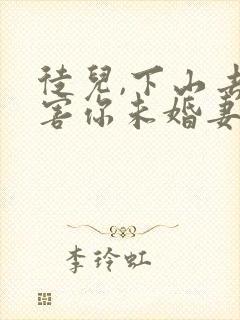 徒兒,下山去
害你未婚妻
李玲虹